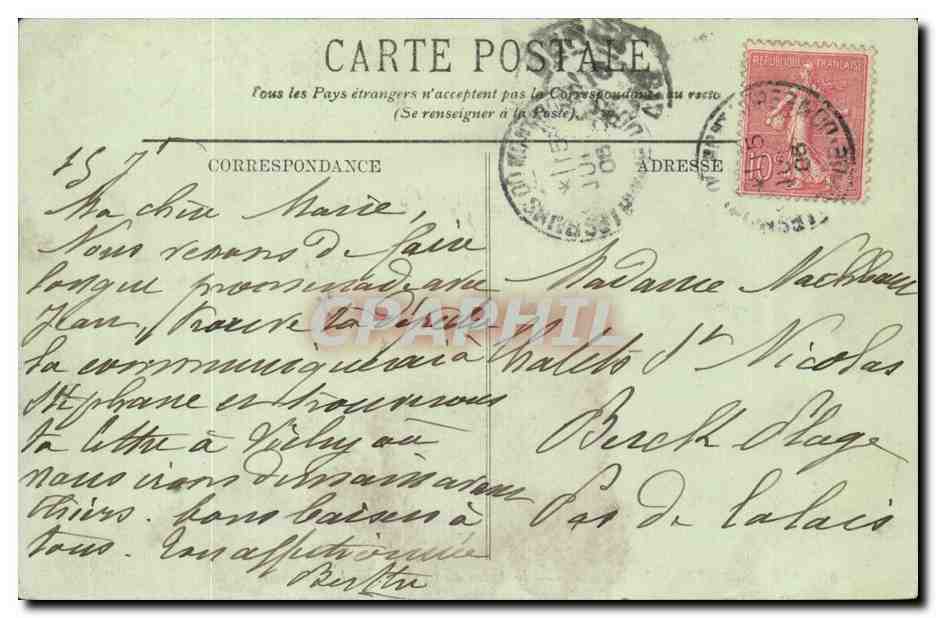 CARTE POSTALE
Tous les Pays étrangers n'acceptent pas la Correspondance au recto
(Se renseigner à la Poste).
CORRESPONDANCE
ADRESSE
REPUBLIQUE FRANÇAISE
10
15 7
Ma chère Marie,
Nous venons de faire
longue promenade avec
Jean, trouve ta dépêche
la communiquerai à
Stéphane et trouverons
ta lettre à Vichy où
nous irons demain avant
Thiers. bons baisers à
tous. Ton affectionnée
Berthe
Madame
Chalets St Nicolas
Berck Plage
Pas de Calais
CPAPHIL